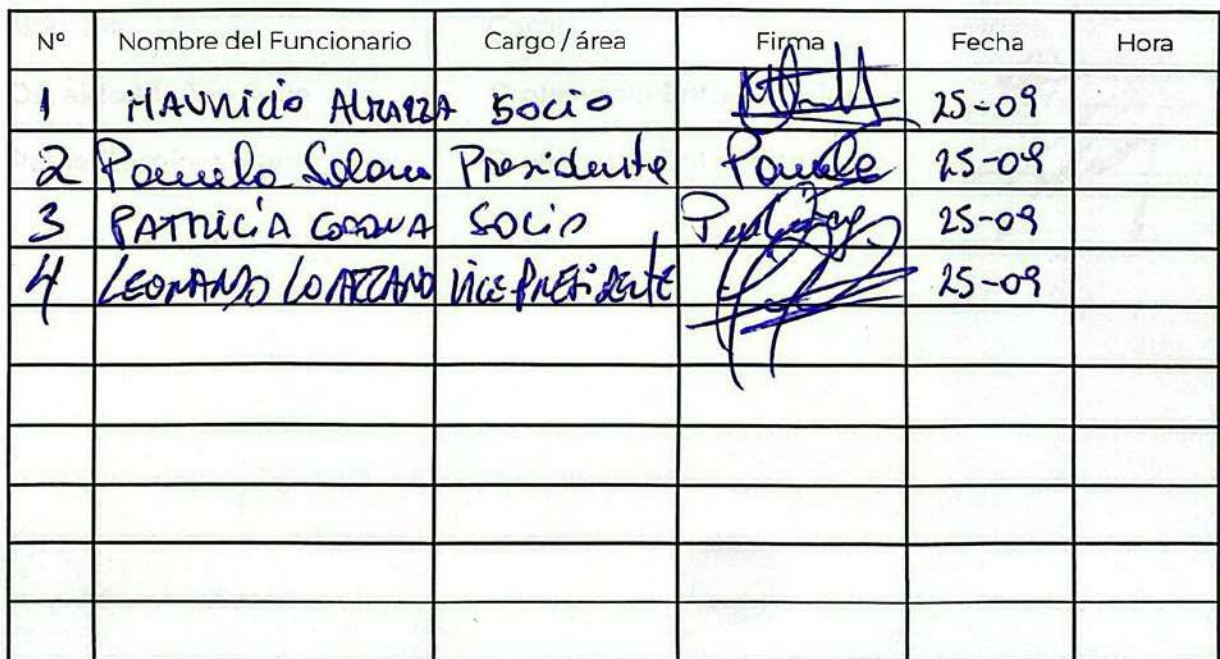 Nº Nombre del Funcionario Cargo / área Firma Fecha Hora
1 MAURICIO SOCIO 25-09
2 Pamela Solano Presidente Pamela 25-09
3 PATRICIA SOCIO 25-09
4 LEONARDO VICE-PRESIDENTE 25-09